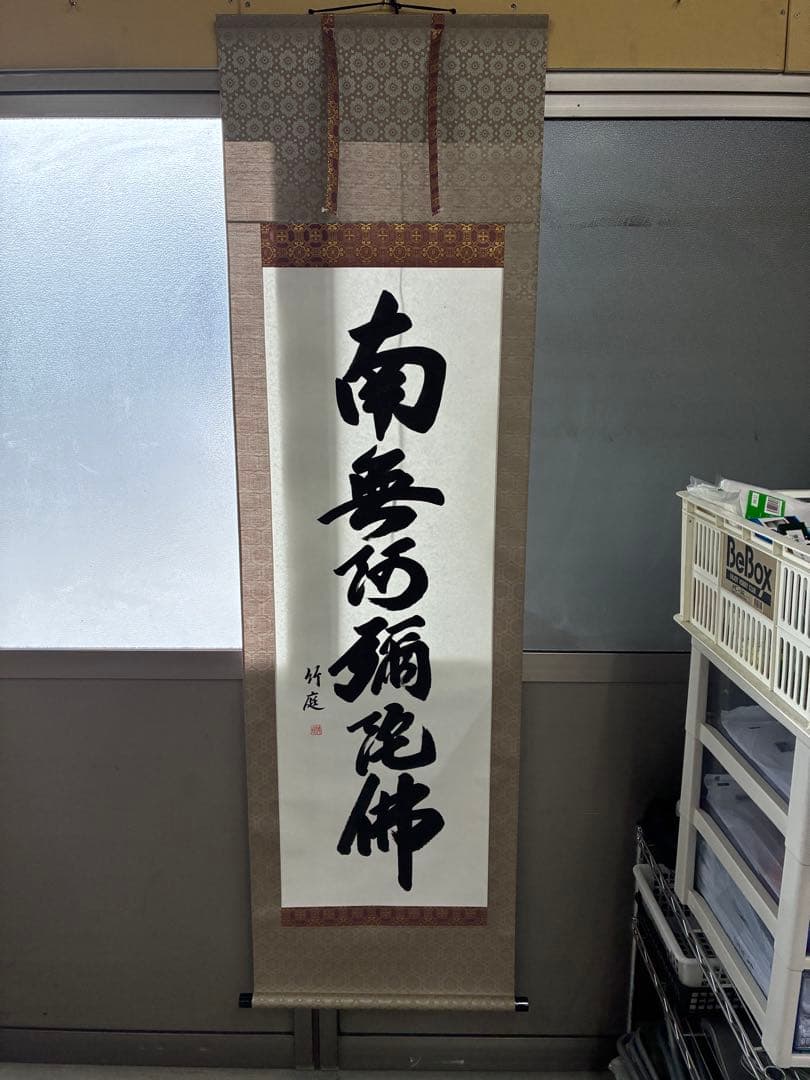 南無阿彌陀佛
竹庭
BeBox